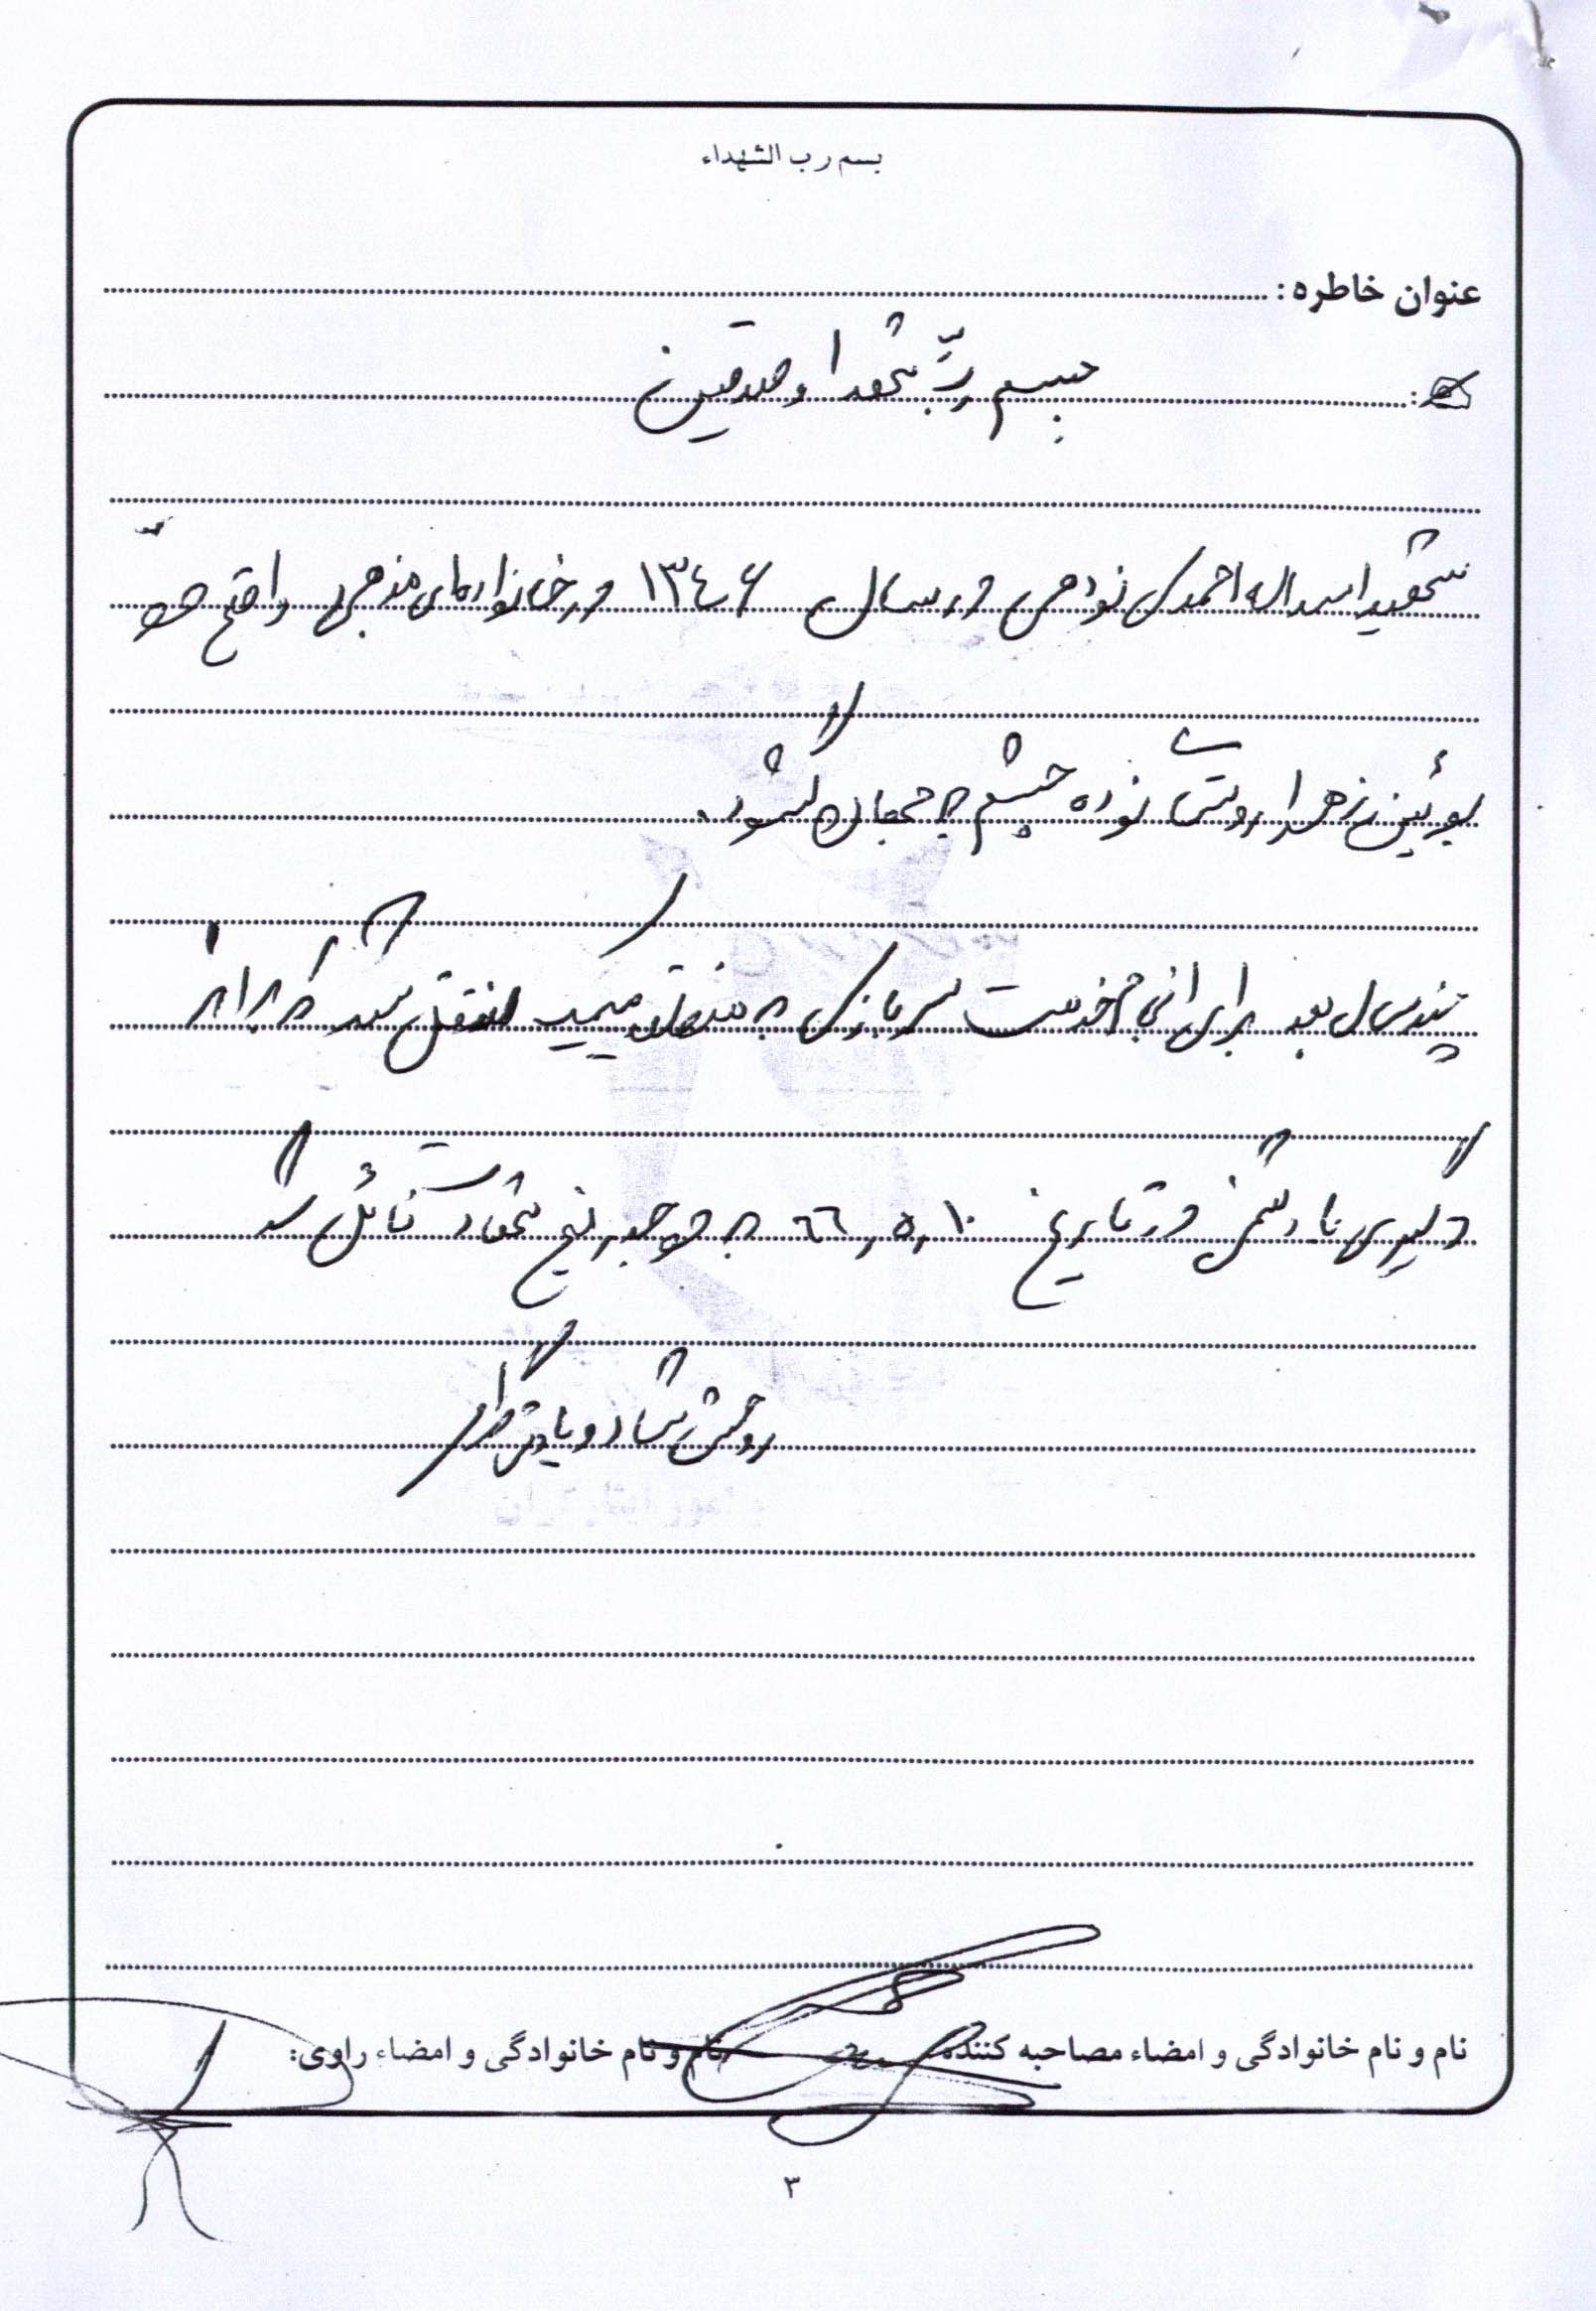 بسم رب الشهداء
عنوان خاطره:
بسم ربّ شهدا و صدیقین
شهید اسداله احمدی نودهی در سال ۱۳۴۶ در خانواده‌ای مذهبی واقع در
بوئین زهرا روستای نوده چشم به جهان گشود.
چند سال بعد برای انجام خدمت سربازی به منطقه میمک منتقل شد که بر اثر
درگیری با دشمن در تاریخ ۶۶٫۵٫۱۰ به درجه رفیع شهادت نائل شد
روحش شاد و یادش گرامی
نام و نام خانوادگی و امضاء مصاحبه کننده
نام و نام خانوادگی و امضاء راوی:
۳